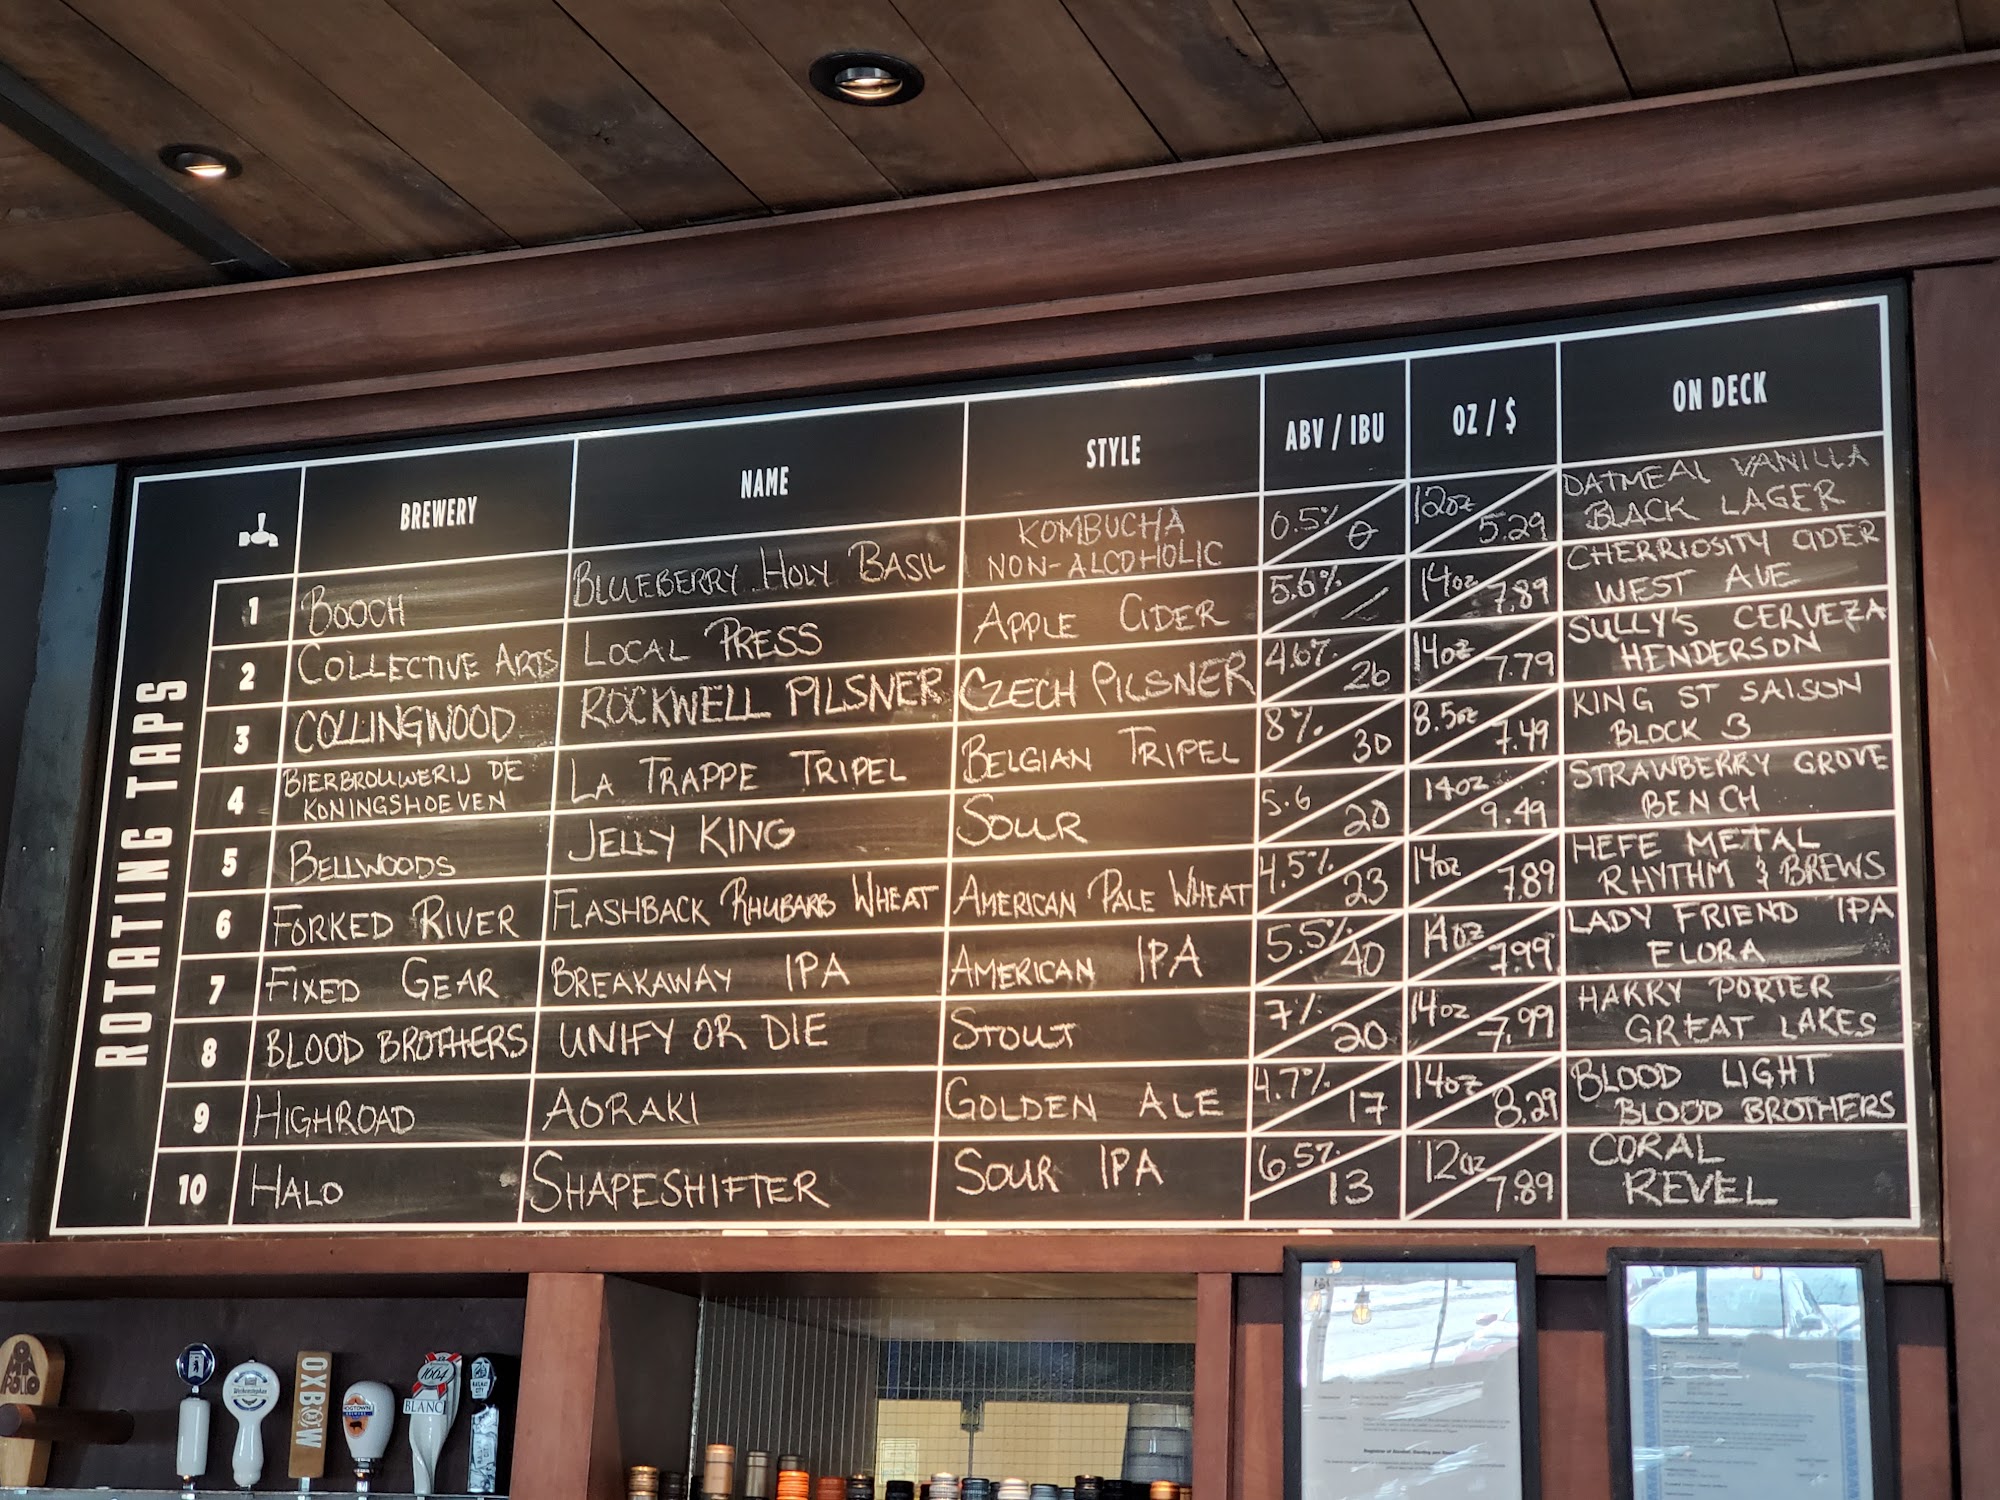 ROTATING TAPS
BREWERY NAME STYLE ABV / IBU OZ / $ ON DECK
1 BOOCH BLUEBERRY HOLY BASIL KOMBUCHA NON-ALCOHOLIC 0.5% 0 12oz 5.29 OATMEAL VANILLA BLACK LAGER
2 COLLECTIVE ARTS LOCAL PRESS APPLE CIDER 5.6% / 14oz 7.89 CHERRIOSITY CIDER WEST AVE
3 COLLINGWOOD ROCKWELL PILSNER CZECH PILSNER 4.6% 26 14oz 7.79 SULLY'S CERVEZA HENDERSON
4 BIERBROUWERIJ DE KONINGSHOEVEN LA TRAPPE TRIPEL BELGIAN TRIPEL 8% 30 8.5oz 7.49 KING ST SAISON BLOCK 3
5 BELLWOODS JELLY KING SOUR 5.6 20 14oz 9.49 STRAWBERRY GROVE BENCH
6 FORKED RIVER FLASHBACK RHUBARB WHEAT AMERICAN PALE WHEAT 4.5% 23 14oz 7.89 HEFE METAL RHYTHM & BREWS
7 FIXED GEAR BREAKAWAY IPA AMERICAN IPA 5.5% 40 14oz 7.99 LADY FRIEND IPA ELORA
8 BLOOD BROTHERS UNIFY OR DIE STOUT 7% 20 14oz 7.99 HARRY PORTER GREAT LAKES
9 HIGHROAD AORAKI GOLDEN ALE 4.7% 17 14oz 8.29 BLOOD LIGHT BLOOD BROTHERS
10 HALO SHAPESHIFTER SOUR IPA 6.5% 13 12oz 7.89 CORAL REVEL
OXBOW
HOGTOWN
1664
BLANC